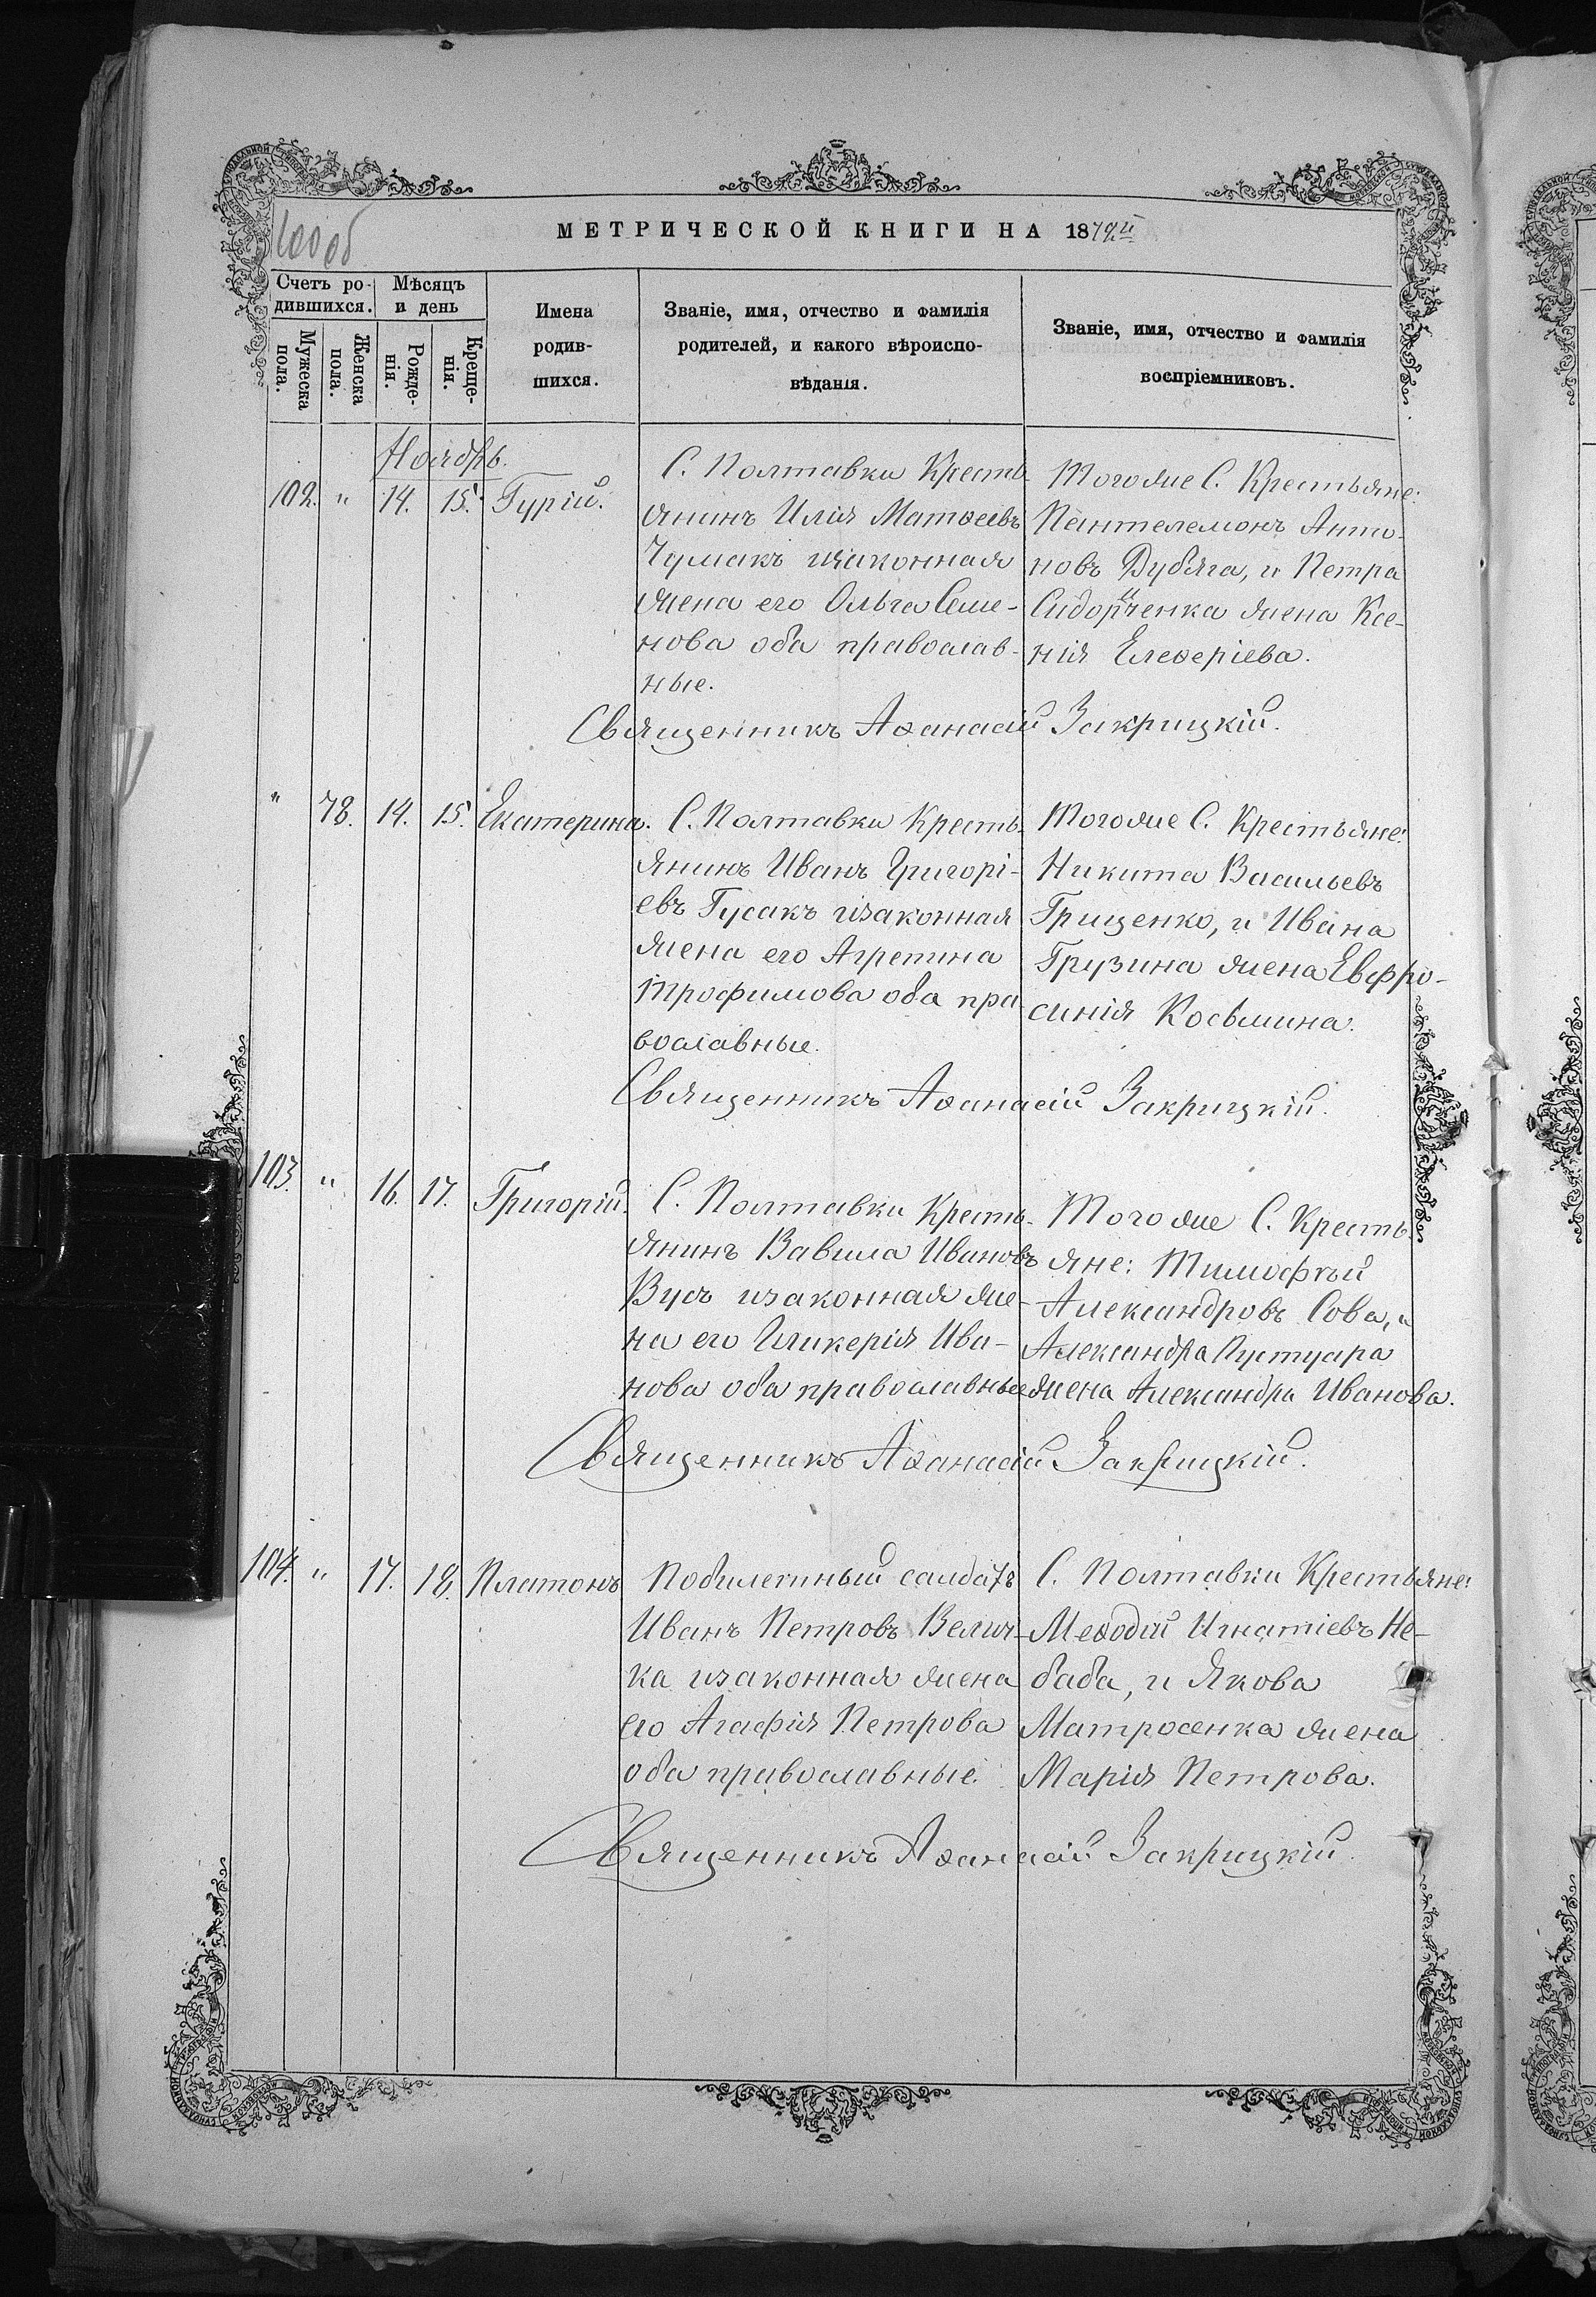 100об
МЕТРИЧЕСКОЙ КНИГИ НА 1872й
Счетъ ро-
дившихся.
Мѣсяцъ
и день
Мужеска
пола.
Женска
пола.
Рожде-
нія.
Креще-
нія.
Имена
родив-
шихся.
Званіе, имя, отчество и фамилія
родителей, и какого вѣроиспо-
вѣданія.
Званіе, имя, отчество и фамилія
воспріемниковъ.
Ноябрь.
102. " 14. 15. Гурій.
С. Полтавки Кресть-
янинъ Илія Матѳеевъ
Чумакъ изаконная
жена его Ольга Семе-
нова оба православ-
ные.
Тогоже С. Крестьяне:
Пантелемонъ Анто-
новъ Дубяга, и Петра
Сидорченка жена Ксе-
нія Елеѳеріева.
Священникъ Аѳанасій Закрицкій.
" 78. 14. 15. Екатерина.
С. Полтавки Кресть-
янинъ Иванъ Григорі-
евъ Гусакъ изаконная
жена его Агрепина
Трофимова оба пра-
вославные.
Тогоже С. Крестьяне:
Никита Васильевъ
Грищенко, и Ивана
Грузина жена Евфро-
синія Косьмина.
Священникъ Аѳанасій Закрицкій.
103. " 16. 17. Григорій.
С. Полтавки Кресть-
янинъ Вавила Ивановъ
Вусъ изаконная же-
на его Гликерія Ива-
нова оба православные
Тогоже С. Кресть-
яне: Тимофѣй
Александровъ Сова, и
Александра Пустуара
жена Александра Иванова.
Священникъ Аѳанасій Закрицкій.
104. " 17. 18. Платонъ
Побилетный салдатъ
Иванъ Петровъ Велич-
ка изаконная жена
его Агафія Петрова
оба православные.
С. Полтавки Крестьяне:
Меѳодій Игнатіевъ Не-
баба, и Якова
Матросенка жена
Марія Петрова.
Священникъ Аѳанасій Закрицкій.